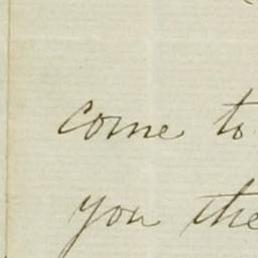 come to
you the